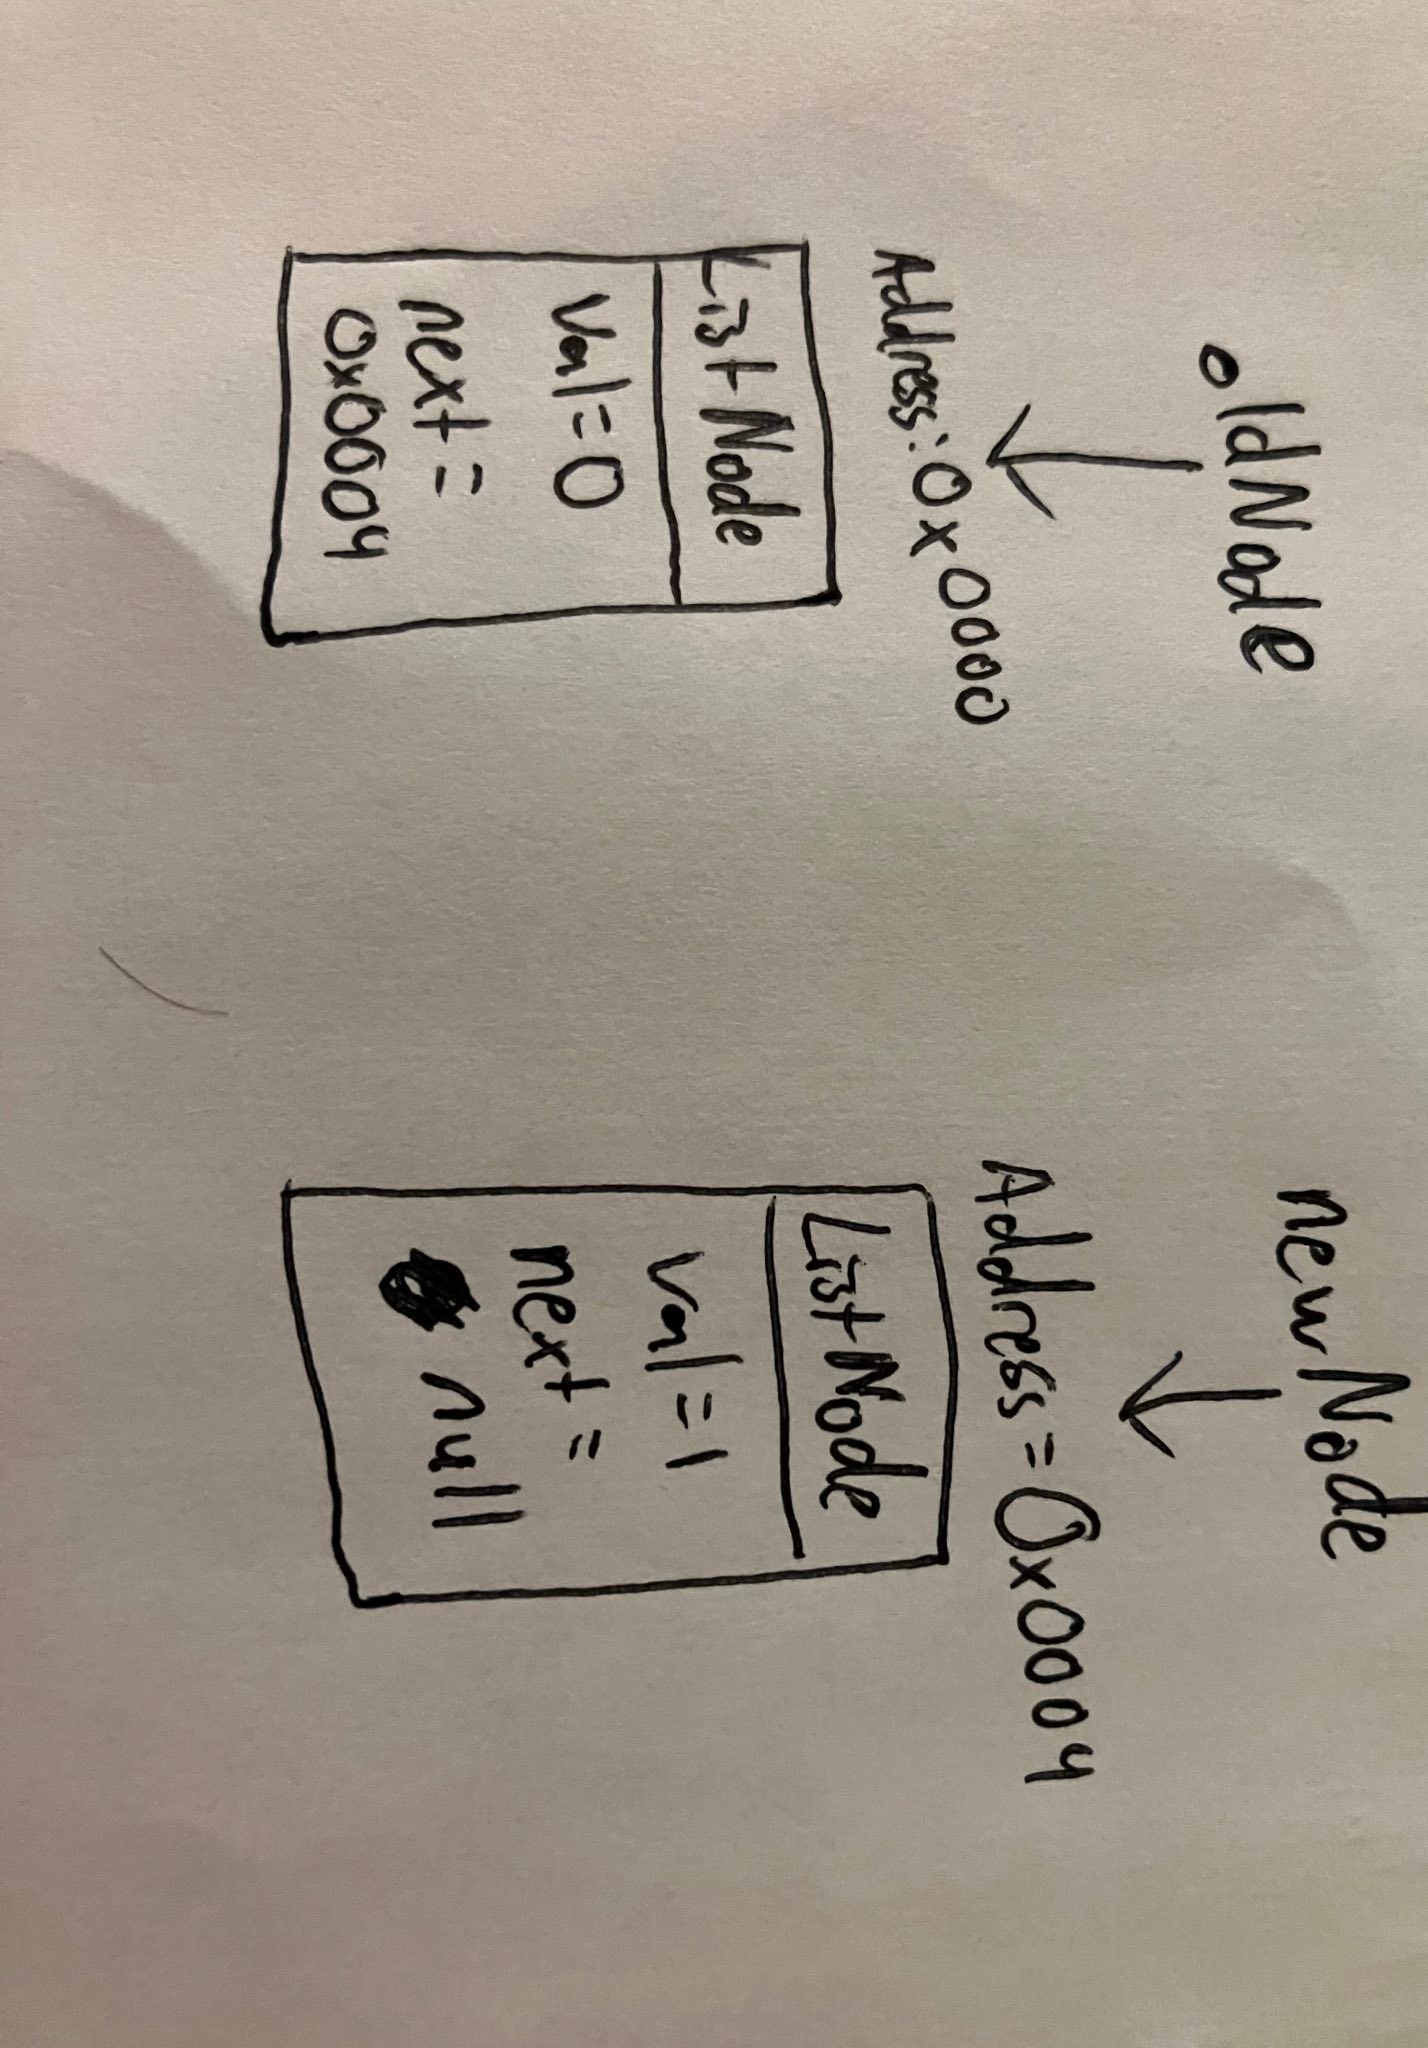 oldNode
Address: 0x0000
ListNode
val=0
next=
0x0004
newNode
Address=0x0004
ListNode
val=1
next=
null